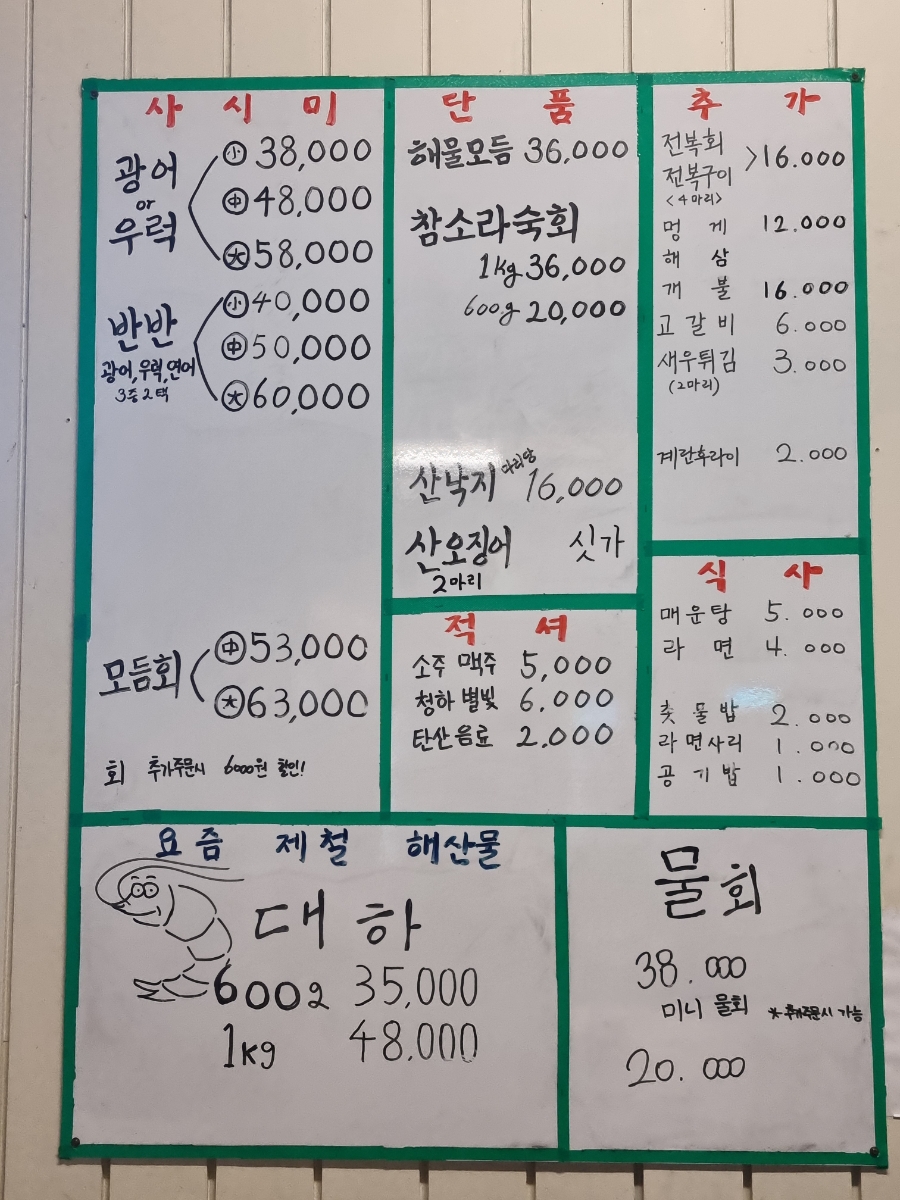 사시미
광어 or 우럭
㊥小 38,000
㊥ 48,000
大 58,000
반반
광어, 우럭, 연어
3중 2택
小 40,000
㊥ 50,000
大 60,000
모듬회
㊥ 53,000
大 63,000
회 추가주문시 6000원 할인!
단품
해물모듬 36,000
참소라숙회
1kg 36,000
600g 20,000
산낙지 마리당 16,000
산오징어 싯가
2마리
적셔
소주 맥주 5,000
청하 별빛 6,000
탄산음료 2,000
추가
전복회
전복구이 >16.000
<4마리>
멍게 12.000
해삼
개불 16.000
고갈비 6.000
새우튀김 3.000
(2마리)
계란후라이 2.000
식사
매운탕 5.000
라면 4.000
햇물밥 2.000
라면사리 1.000
공기밥 1.000
요즘 제철 해산물
대하
600g 35,000
1kg 48,000
물회
38.000
미니 물회 *추가주문시 가능
20.000